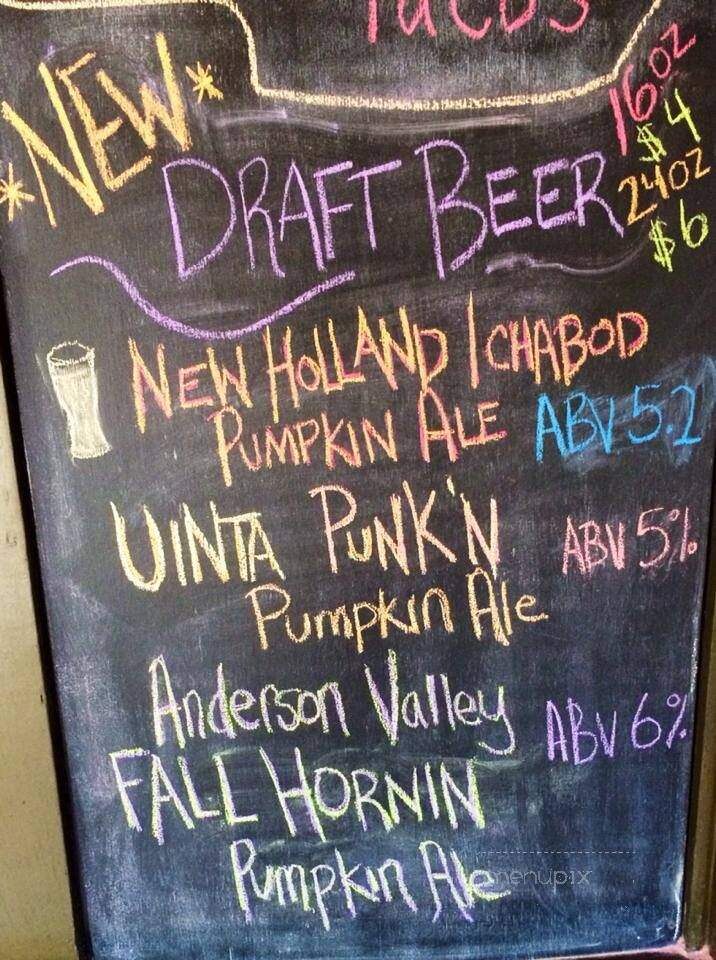 TACOS
*NEW*
16oz
$4
DRAFT BEER
24oz
$6
NEW HOLLAND ICHABOD
PUMPKIN ALE ABV 5.2
UINTA PUNK'N ABV 5%
Pumpkin Ale
Anderson Valley ABV 6%
FALL HORNIN
Pumpkin Ale
menupix